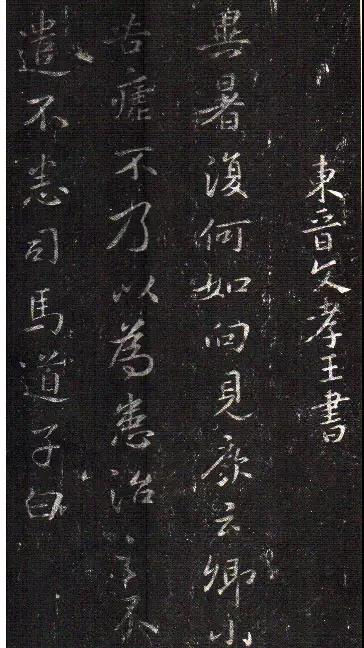 東晉文孝王書
異暑復何如向見康云卿小
苦瘧不乃以為患治
遣不悉司馬道子白